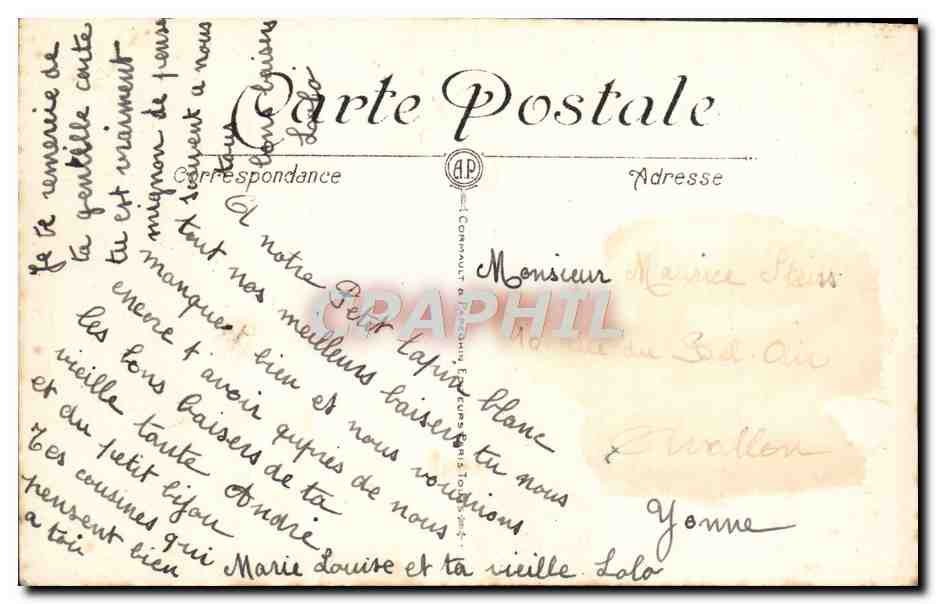 Carte Postale
Correspondance
Adresse
A.P.
CORMAULT & PAPEGHIN, EDITEURS PARIS TOURS
CPAPHIL
A notre Petit lapin blanc
tout nos meilleurs baisers tu nous
manques bien et nous voudrions
encore t'avoir auprès de nous
les bons baisers de ta
vieille tante André
et du petit bijou
Tes cousines qui
pensent bien
a toi Marie Louise et ta vieille Lolo
Je te remercie de
ta gentille carte
tu est vraiment
mignon de penser
souvent a nous
tous
bons baisers
Lolo
Monsieur Maurice
rue du Bd. Air
Avallon
Yonne